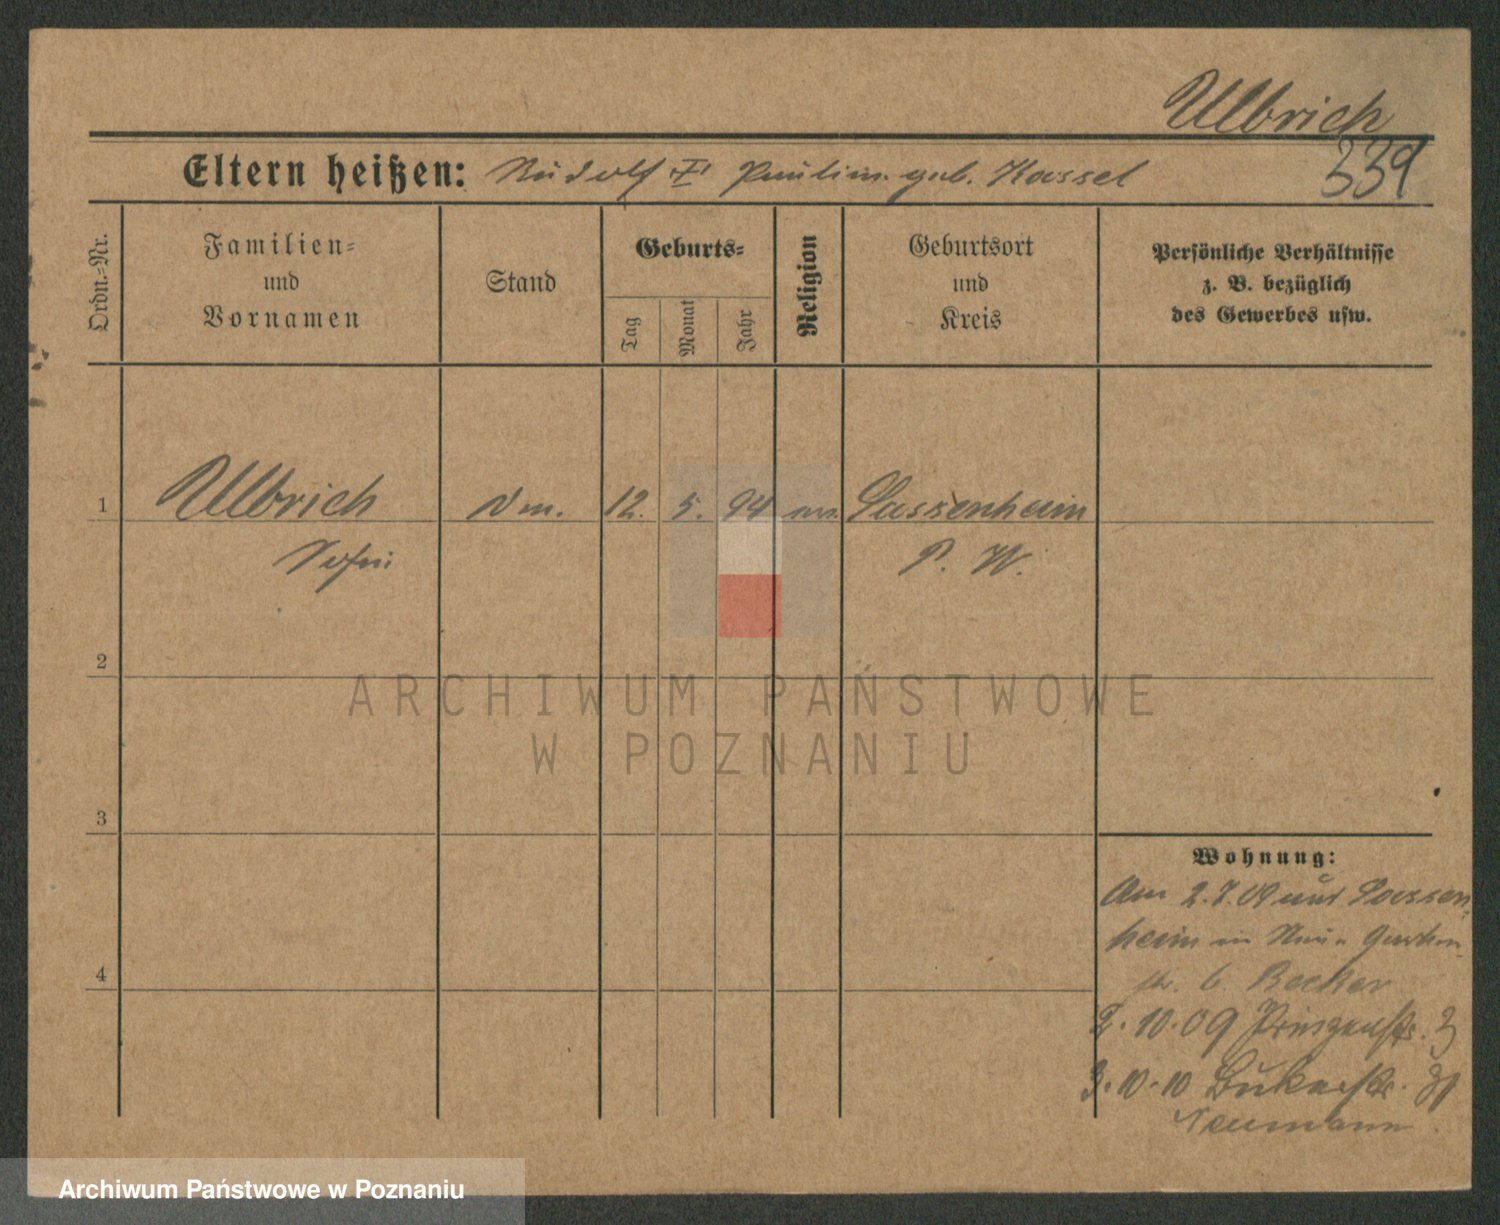 Ulbrich
339
Eltern heißen: Rudolf u. Paulin. geb. Kassel
Ordn.-Nr.
Familien-
und
Vornamen
Stand
Geburts-
Tag
Monat
Jahr
Religion
Geburtsort
und
Kreis
Persönliche Verhältnisse
z. B. bezüglich
des Gewerbes usw.
1
Ulbrich
12. 5. 94
Sassenheim
P. W.
2
ARCHIWUM PAŃSTWOWE
W POZNANIU
3
4
Wohnung:
Am 2.7.09 aus Sassen-
heim in Garten-
str. 6. Becker
2.10.09 Prinzenstr. 3
3.10.10 Bukerstr. 31
Neumann
Archiwum Państwowe w Poznaniu